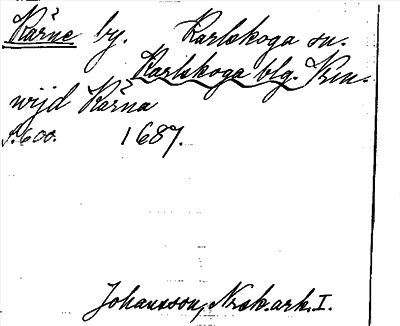 Kärne by. Karlskoga sn.
Karlskoga blg. Krn.
wijd Kärna
s. 600. 1687.
Johansson, Nrsk. ark. I.